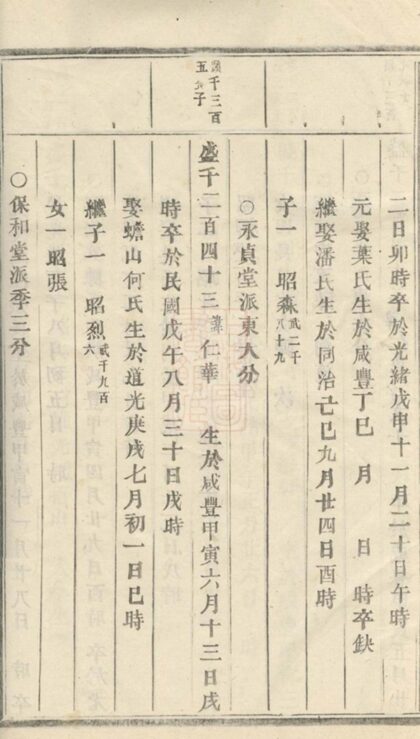 二日卯時卒於光緒戊申十一月二十日午時
元娶葉氏生於咸豐丁巳 月 日 時卒缺
繼娶潘氏生於同治己巳九月廿四日酉時
子一 昭森 貳千八十九
〇永貞堂派東大分
千三百五 子
盛千二百四十三諱仁華 生於咸豐甲寅六月十三日戌
時卒於民國戊午八月三十日戌時
娶蟾山何氏生於道光庚戌七月初一日巳時
繼子一 昭烈 貳千九百六
女一昭張
〇保和堂派季三分